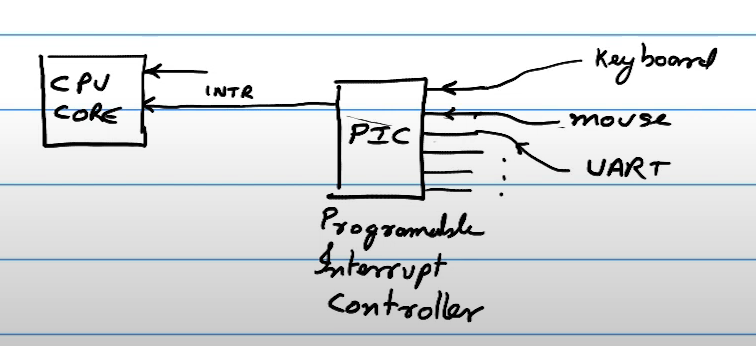 CPU
CORE
INTR
PIC
Keyboard
mouse
UART
Programable
Interrupt
Controller